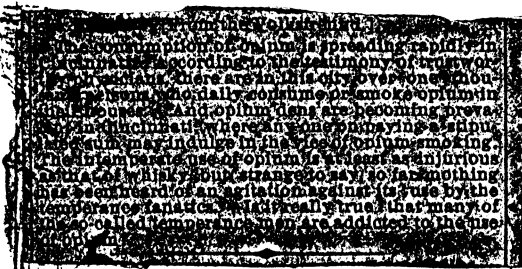 The consumption of opium is spreading rapidly in
Cincinnati. According to the testimony of trustwor
physicians, there are in this city over one thou
who daily consume or smoke opium in
houses. And opium dens are becoming preva
in Cincinnati where any one on paying a stipu
lated sum may indulge in the vice of opium smoking.
The intemperate use of opium is at least as injurious
as that of whisky, but, strange to say, so far nothing
has been heard of an agitation against its use by the
temperance fanatics. Is it really true that many of
the so called temperance men are addicted to the use
of op